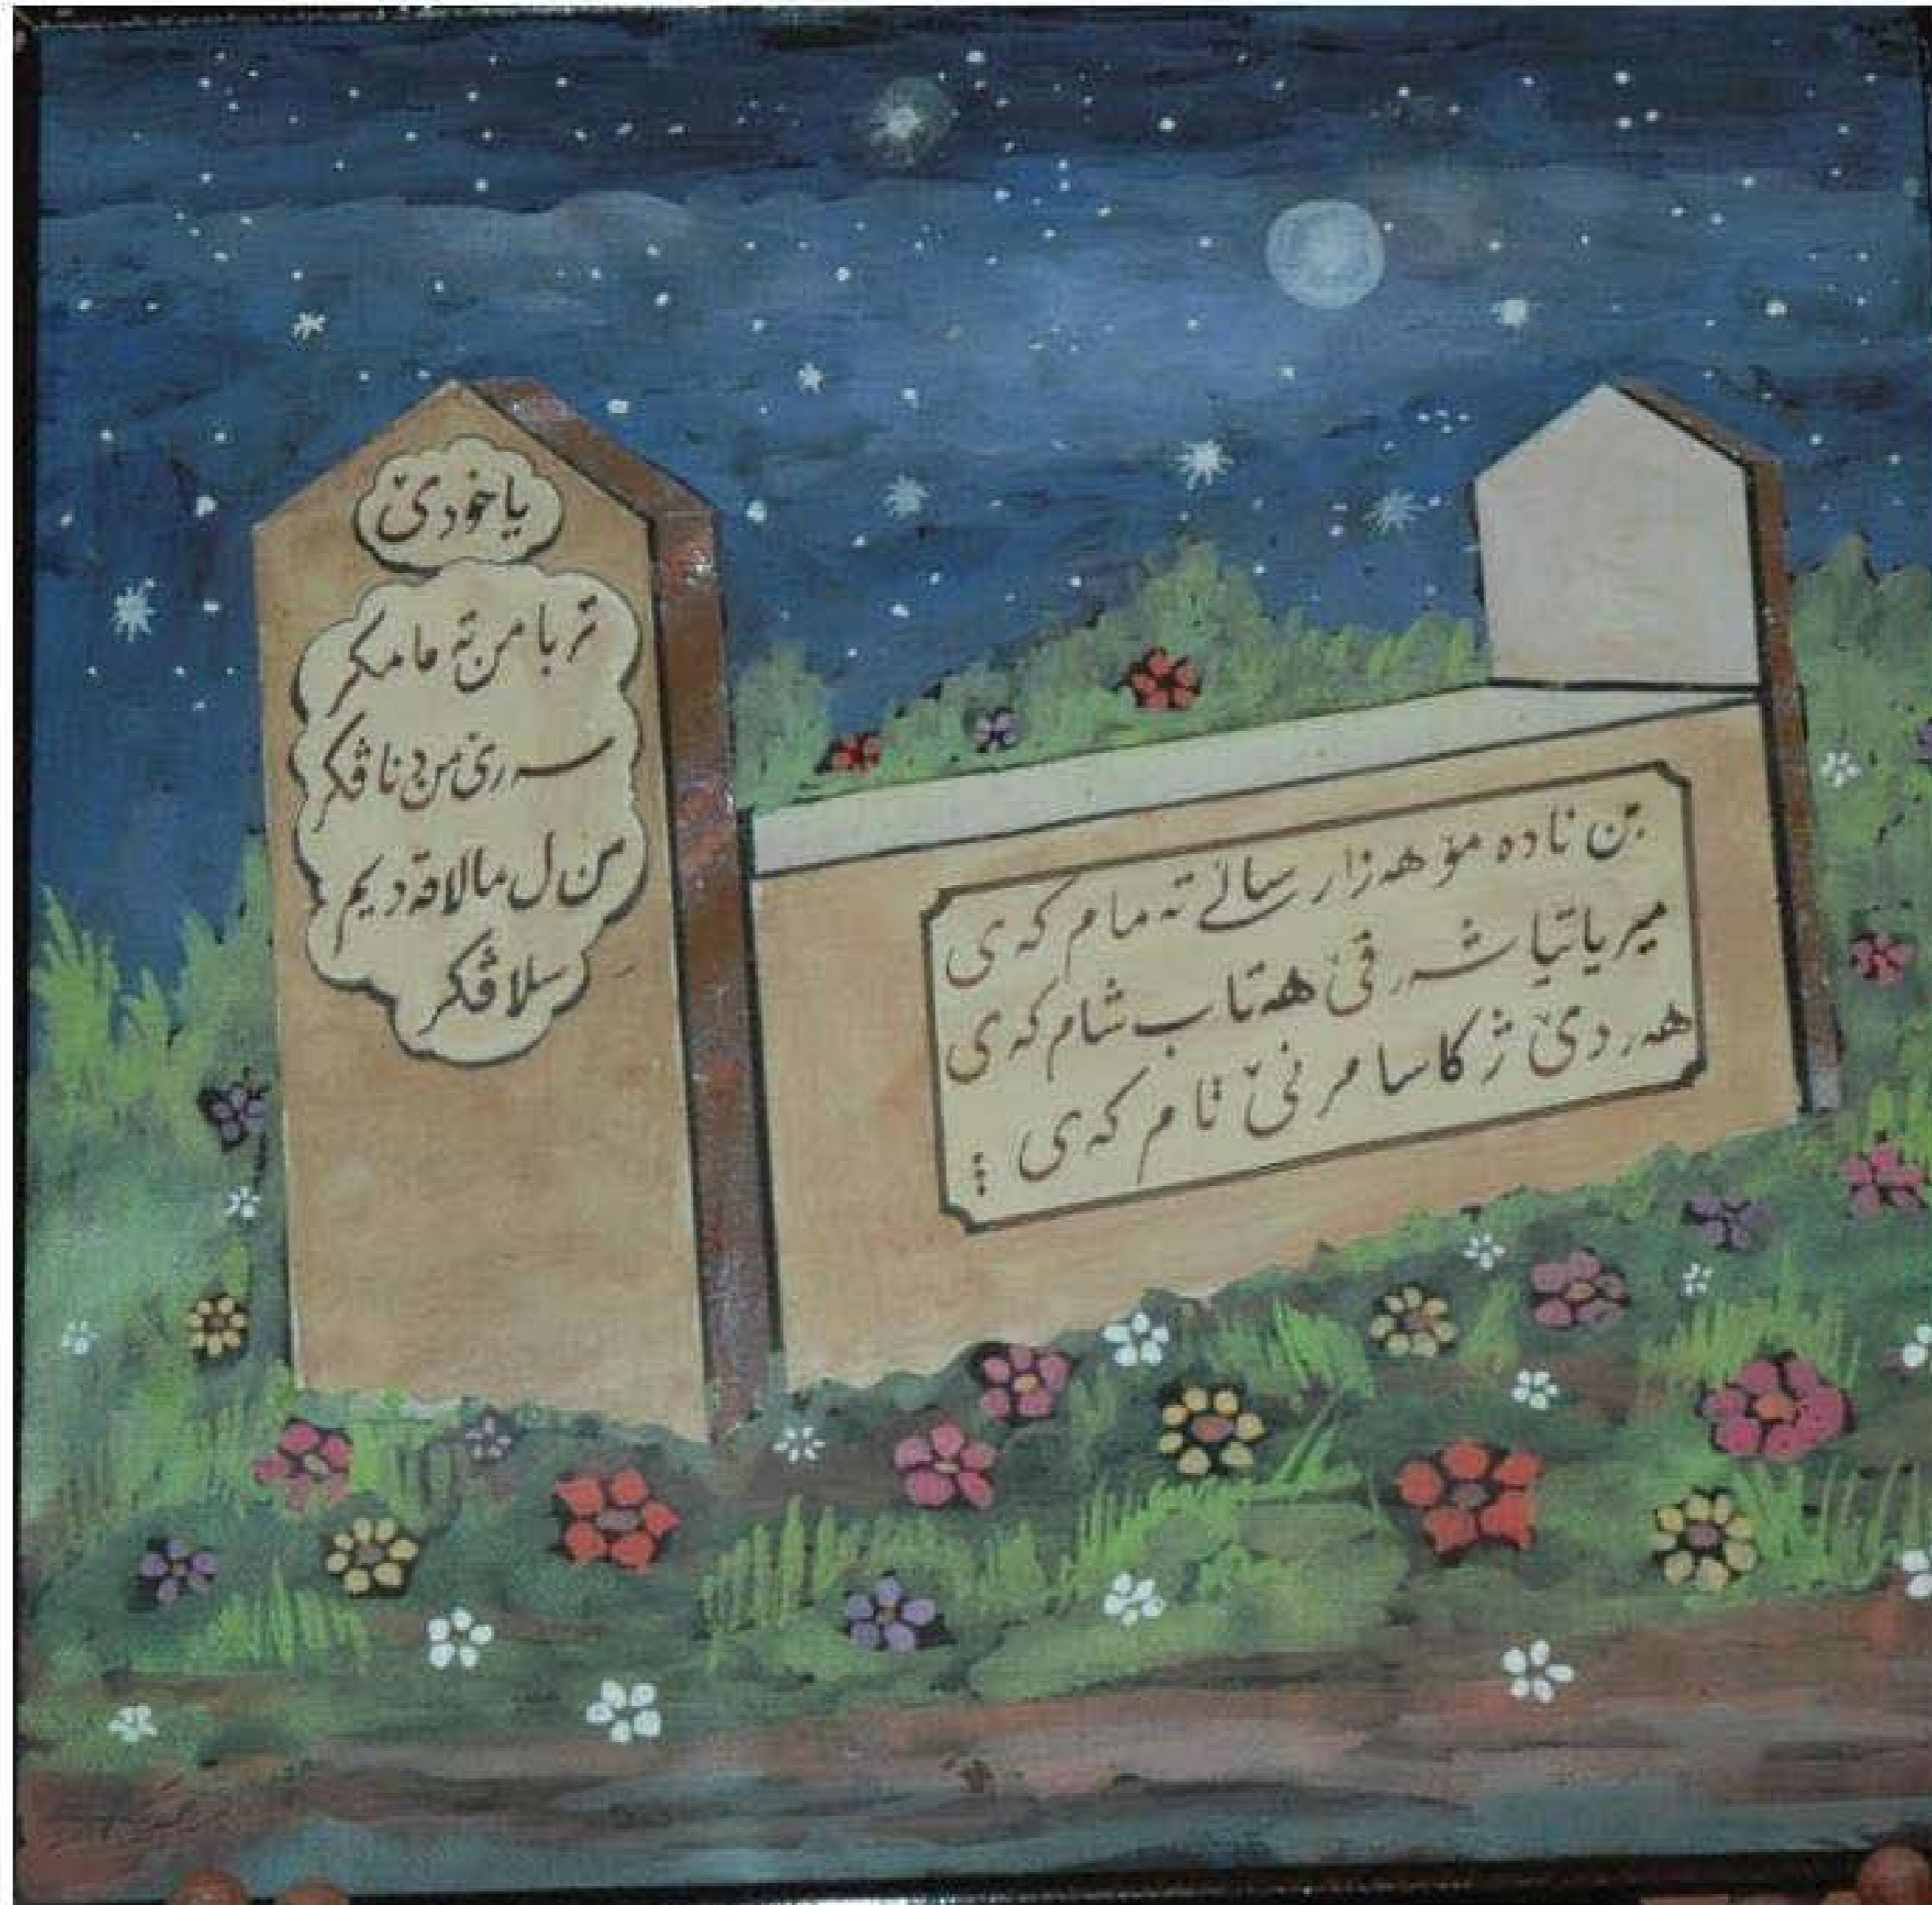 یا خودێ
تربا من تە عامکر
سەرێ من د ناڤکر
من ل مالا قەدیم
سلاڤکر
بن نادە مۆ هەزار سالێ تە مام کەی
میریاتیا شەرقێ هەتاب شام کەی
هەر دێ ژ کاسا مرنێ ئام کەی